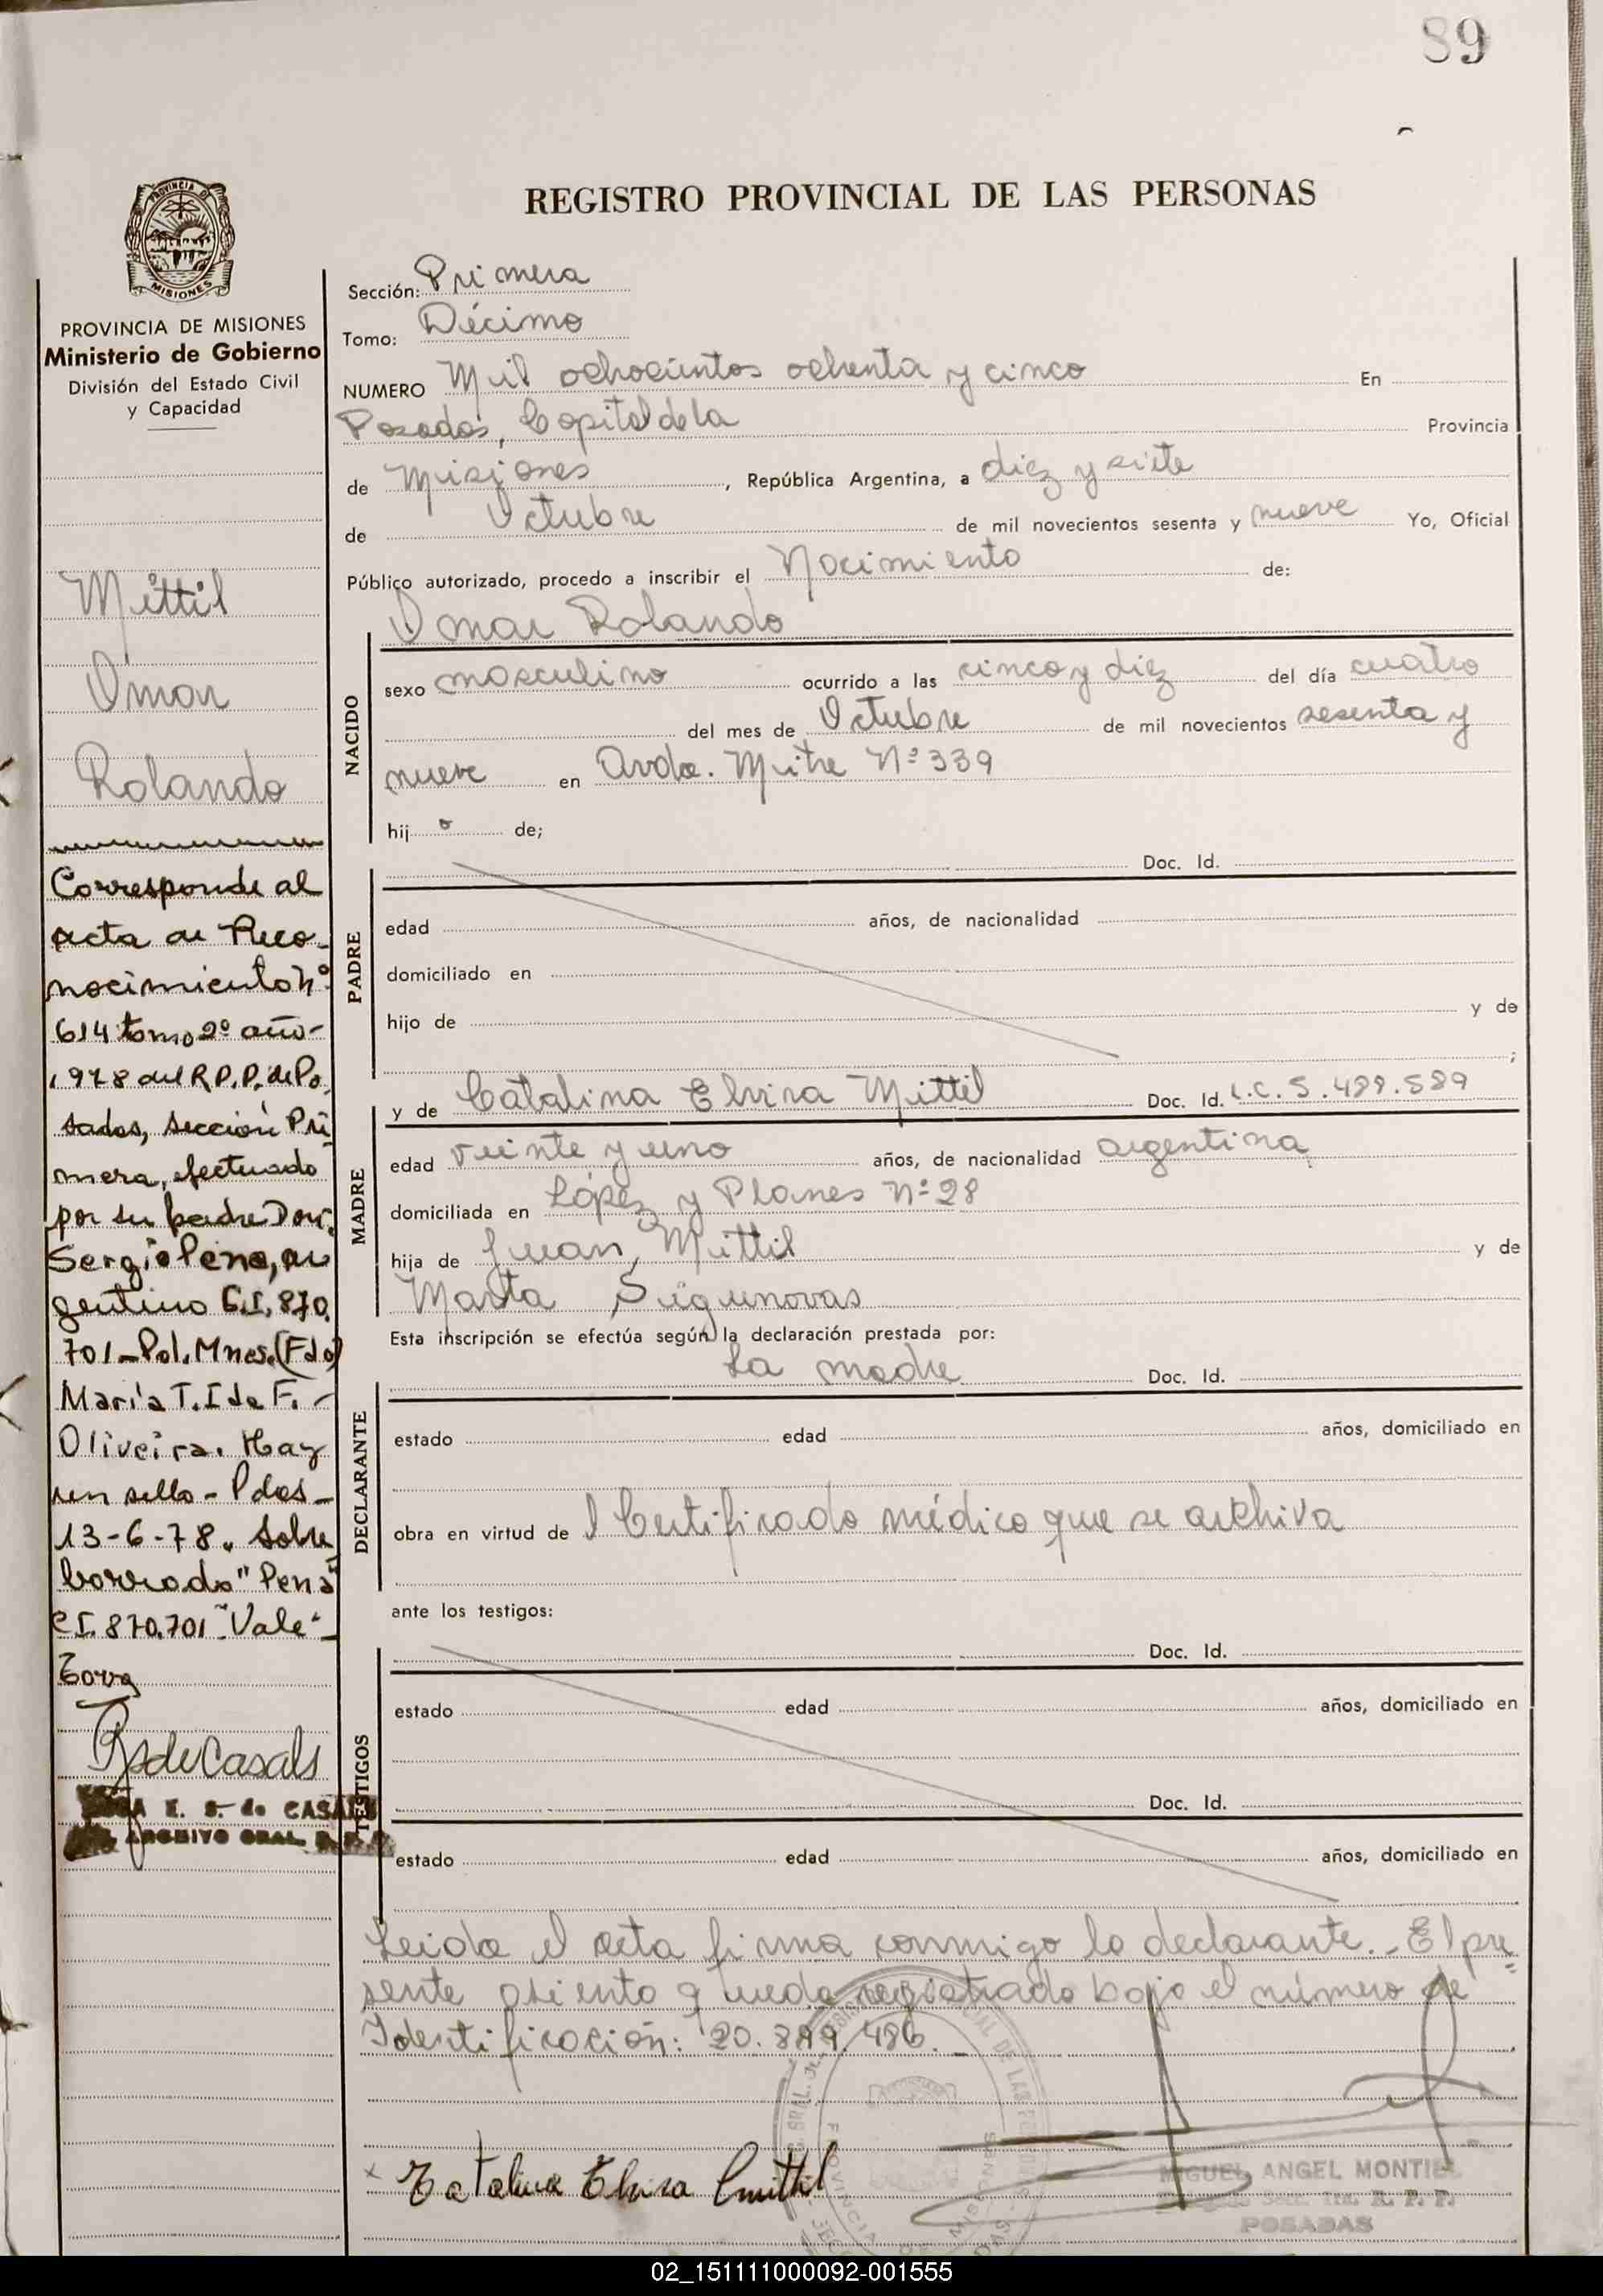 89
REGISTRO PROVINCIAL DE LAS PERSONAS
PROVINCIA DE
MISIONES
PROVINCIA DE MISIONES
Ministerio de Gobierno
División del Estado Civil
y Capacidad
Mittil
Omar
Rolando
Corresponde al
acta de Reco-
nocimiento Nº
614 tomo 2º año-
1978 del R.P.P. de Po-
sadas, sección Pri
mera, efectuado
por su padre Don:
Sergio Pena, ar
gentino C.I. 870.
701-Pol. Mnes. (Fdo)
María T. I de F. -
Oliveira. Hay
un sello - Pdas -
13-6-78. Sobre
borrado "Pena"
C.I. 870.701 "Vale"-
de Casals
E. S. de CASALS
ARCHIVO GRAL. R. P. P.
Sección: Primera
Tomo: Décimo
NUMERO Mil ochocientos ochenta y cinco En
Posadas, Capital de la Provincia
de Misiones, República Argentina, a diez y siete
de Octubre de mil novecientos sesenta y nueve Yo, Oficial
Público autorizado, procedo a inscribir el Nacimiento de:
Omar Rolando
NACIDO
sexo masculino ocurrido a las cinco y diez del día cuatro
del mes de Octubre de mil novecientos sesenta y
nueve en Avda. Mitre Nº 339
hij o de;
PADRE
Doc. Id.
edad años, de nacionalidad
domiciliado en
hijo de y de
;
MADRE
y de Catalina Elvira Mittil Doc. Id. L.C. 5.489.589
edad veinte y uno años, de nacionalidad argentina
domiciliada en López y Planes Nº 28
hija de Juan Mittil y de
Marta
Esta inscripción se efectúa según la declaración prestada por:
DECLARANTE
La madre Doc. Id.
estado edad años, domiciliado en
obra en virtud de l Certificado médico que se archiva
ante los testigos:
TESTIGOS
Doc. Id.
estado edad años, domiciliado en
Doc. Id.
estado edad años, domiciliado en
Leida el acta firma conmigo la declarante. - El pre
sente asiento queda registrado bajo el número de
Identificación: 20.899.486. -
x Catalina Elvira Mittil
MIGUEL ANGEL MONTIEL
R. P. P.
POSADAS
02_151111000092-001555